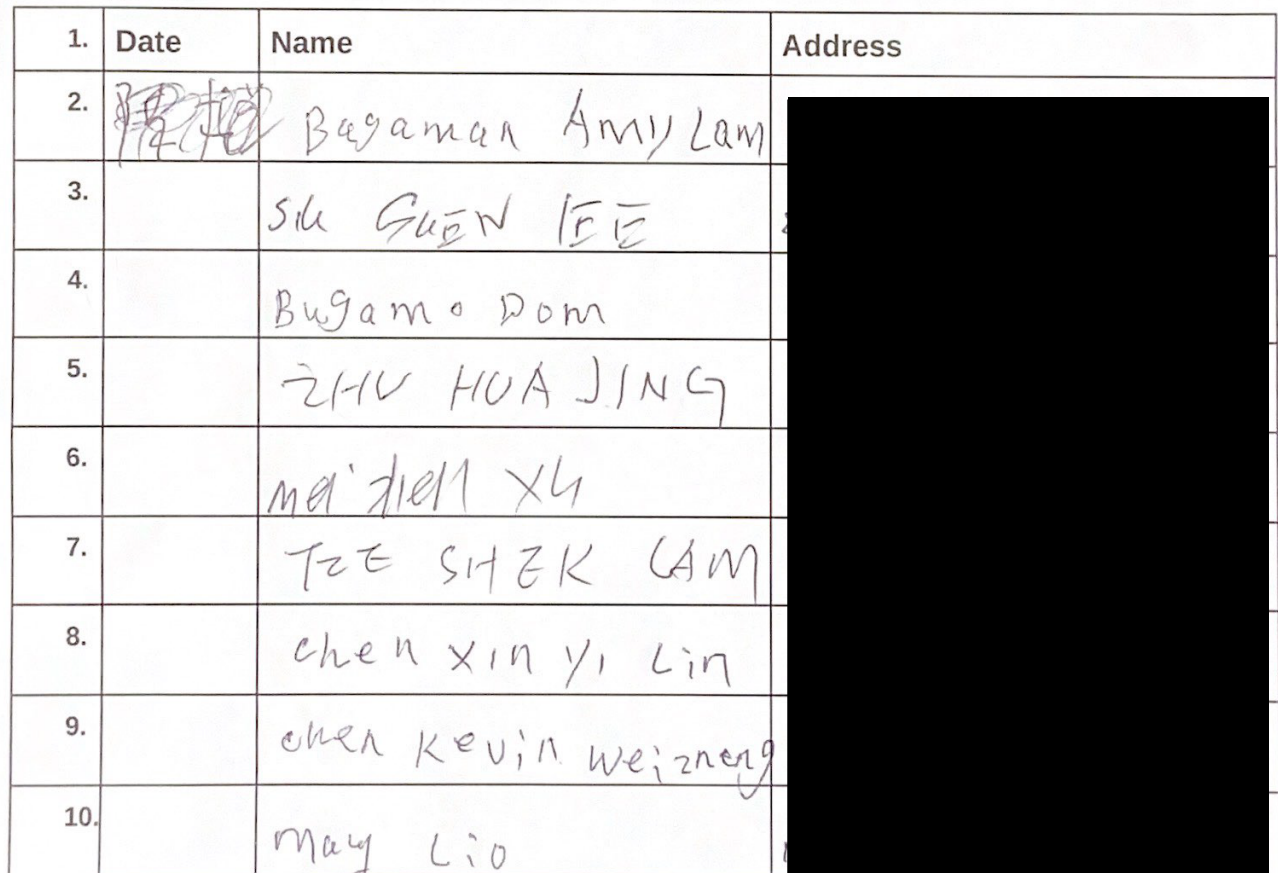 1. Date Name Address
2. Bagaman Amy Lam
3. Sik GUEN IEE
4. Bugamo Dom
5. ZHU HUA JING
6. Mei
7. TZE SHEK LAM
8. chen xin yi Lin
9. chen Kevin weizheng
10. May Lio